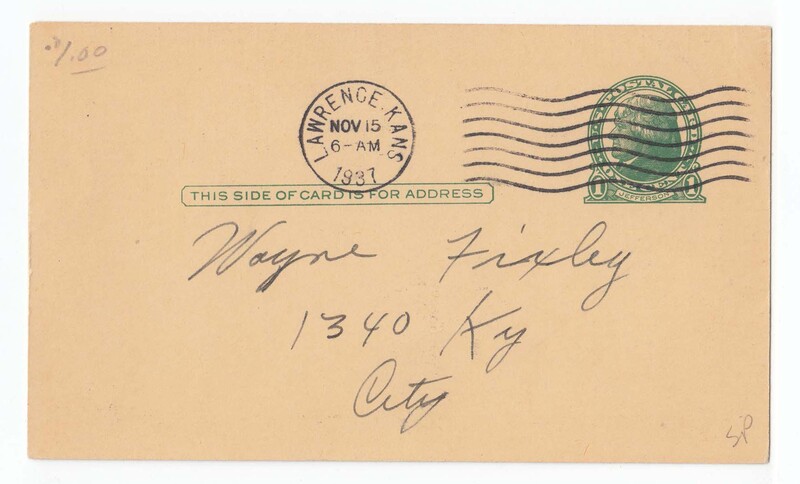 1.00
LAWRENCE, KANS
NOV 15
6-AM
1937
JEFFERSON
1 1
THIS SIDE OF CARD IS FOR ADDRESS
Wayne Fixley
1340 Ky
City